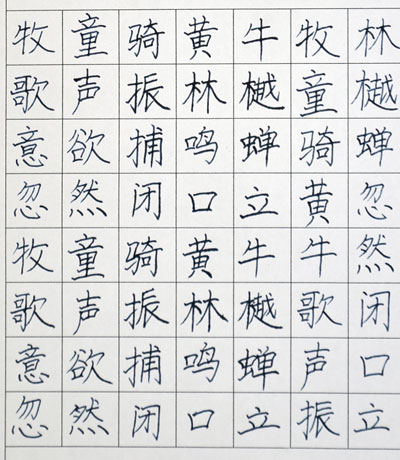 牧童骑黄牛牧林
歌声振林樾童樾
意欲捕鸣蝉骑蝉
忽然闭口立黄忽
牧童骑黄牛牛然
歌声振林樾歌闭
意欲捕鸣蝉声口
忽然闭口立振立